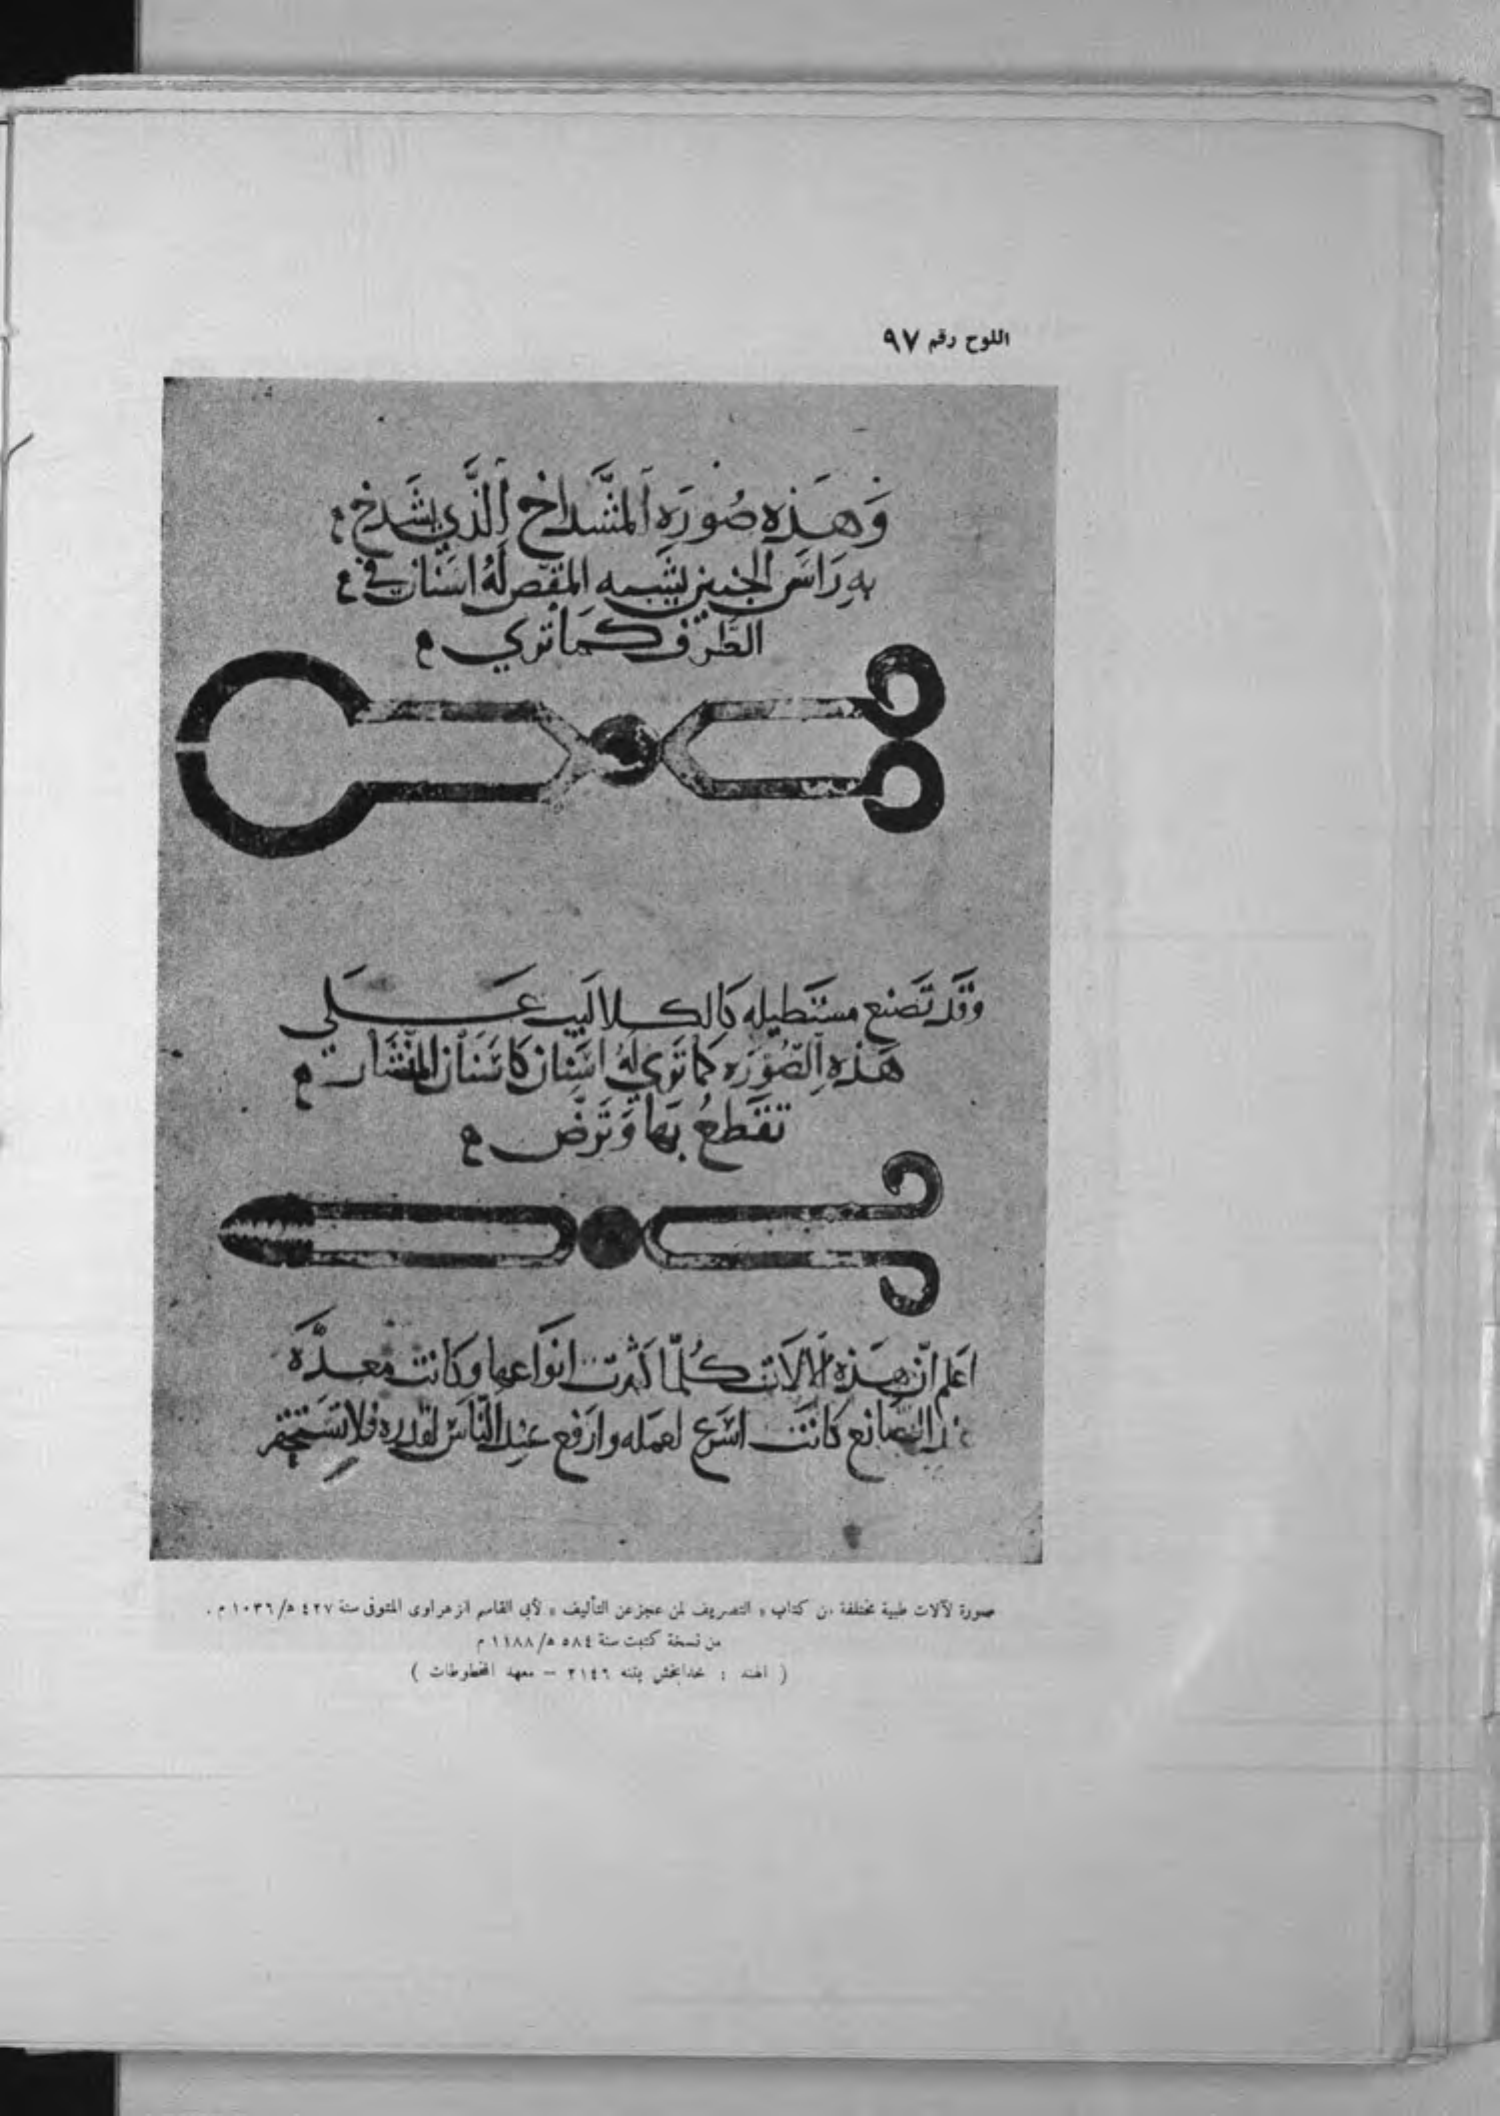 اللوح رقم ٩٧
وَهَذِه صُورَه المشداخ الَّذِي يشدخ
بهِ رَاس الجنين يشبه المقص لَهُ اسنان في
الطَّرَف كما تري
وَقَد تَصنع مستطيله كَالكلاليب عَلَي
هَذِه الصُّورَه كما تري لَهُ اسنان كاسنان المنشار
تقطعُ بهَا وَتَرض
اعلم انّ هَذِه الآلاَت كُلّما كثرت انوَاعها وكانت معدَّه
الصانع كَانت اسرَع لعمله وارفع عند النّاس لقدره فلا تستحقر
صورة لآلات طبية مختلفة من كتاب « التصريف لمن عجز عن التأليف » لأبي القاسم الزهراوى المتوفى سنة ٤٢٧ ه/١٠٣٦ م .
من نسخة كتبت سنة ٥٨٤ ه/١١٨٨ م
( الهند : خدابخش پتنه ٢١٤٦ — معهد المخطوطات )